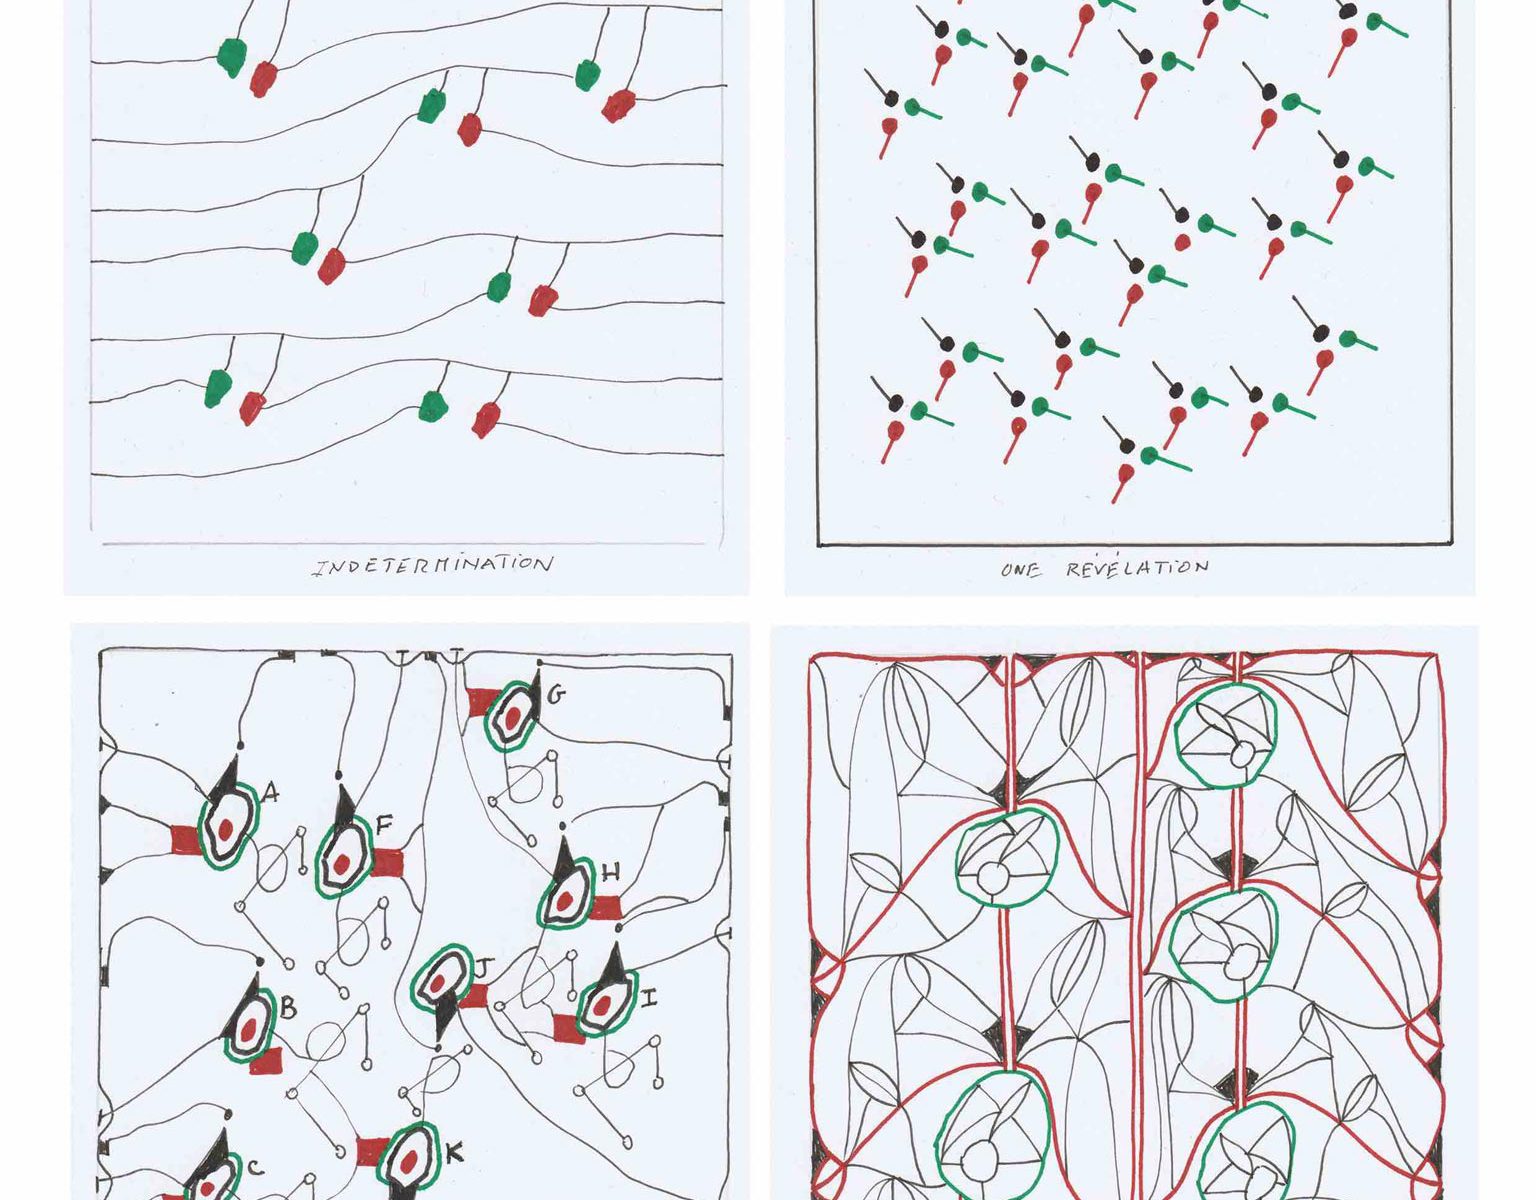 INDETERMINATION
ONE RÉVÉLATION
G
A
F
H
J
I
B
K
C